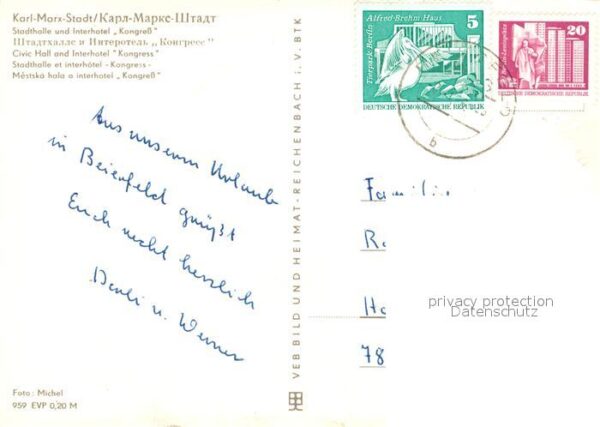 Karl-Marx-Stadt/Карл-Маркс-Штадт
Stadthalle und Interhotel „Kongreß“
Штадтхалле и Интеротель „Конгресс“
Civic Hall and Interhotel "Kongress"
Stadthalle et interhôtel -Kongress-
Městská hala a interhotel „Kongreß“
Aus unserem Urlaub
in Beierfeld grüßt
Euch recht herzlich
u. Werner
Foto: Michel
959 EVP 0,20 M
VEB BILD UND HEIMAT·REICHENBACH i. V. BTK
Alfred-Brehm-Haus
Tierpark Berlin
5
DEUTSCHE DEMOKRATISCHE REPUBLIK
20
DEUTSCHE DEMOKRATISCHE REPUBLIK
b
Famili
R
H
78
privacy protection
Datenschutz